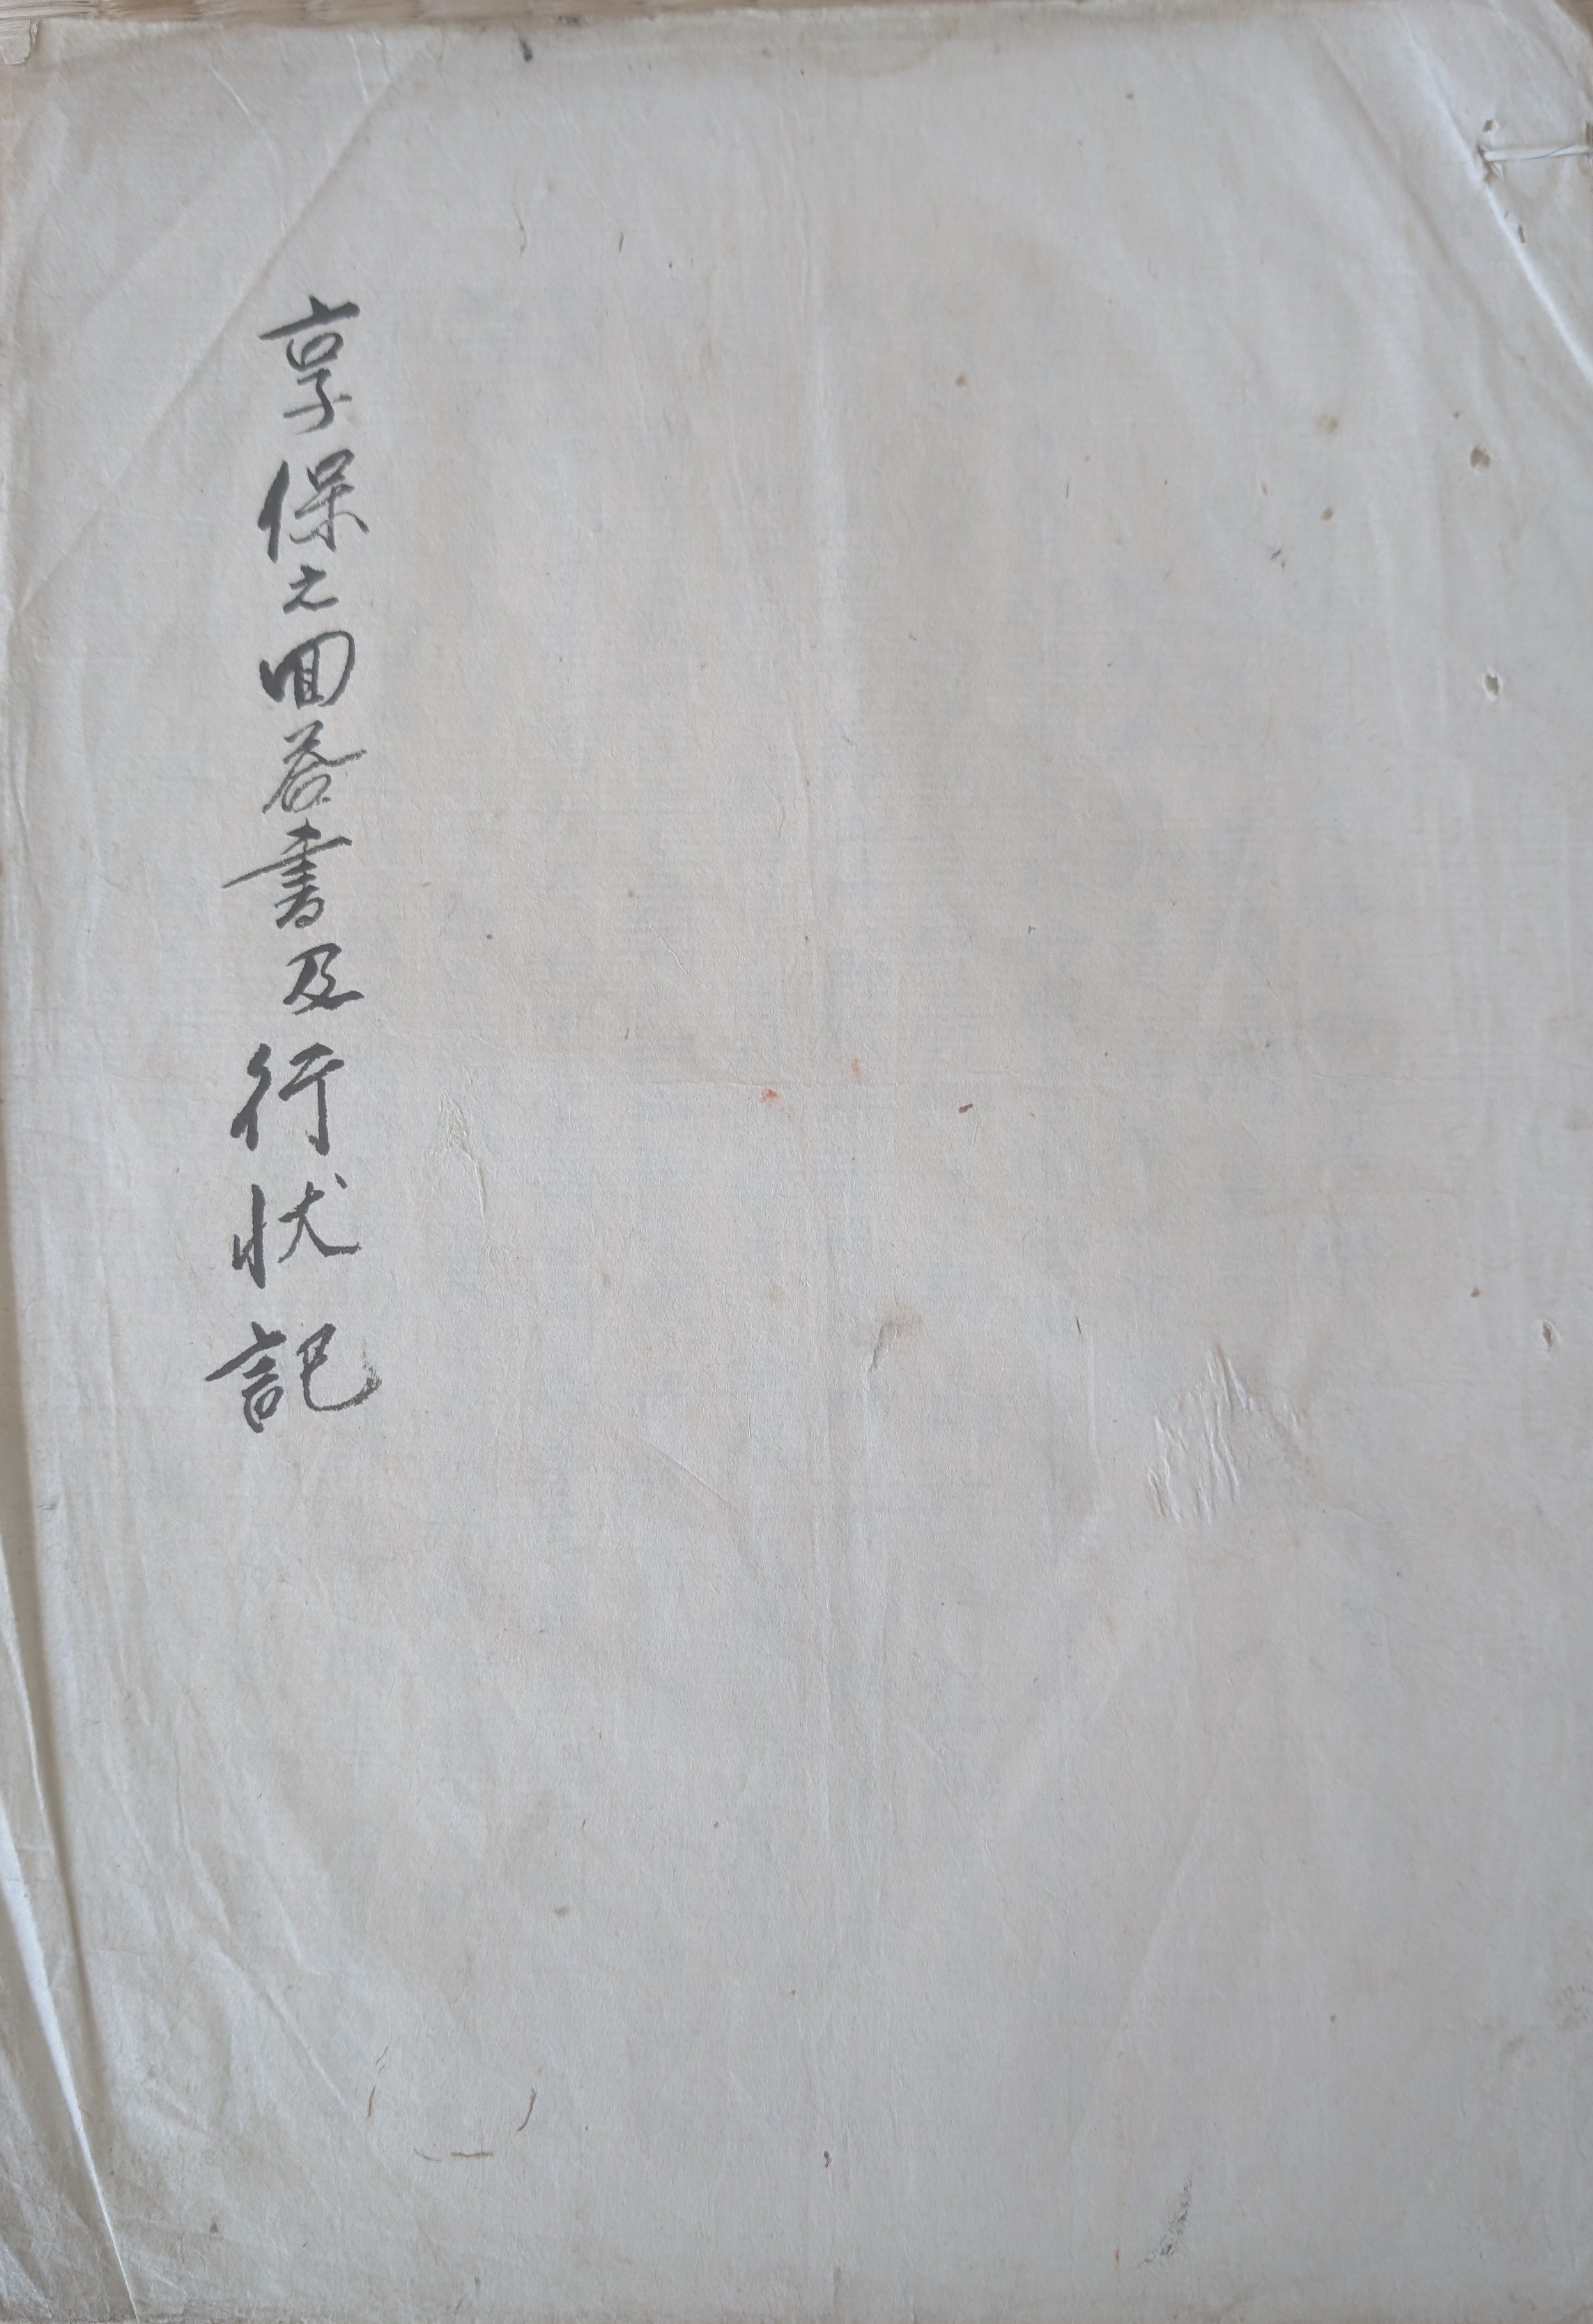 享保之回答書及行状記